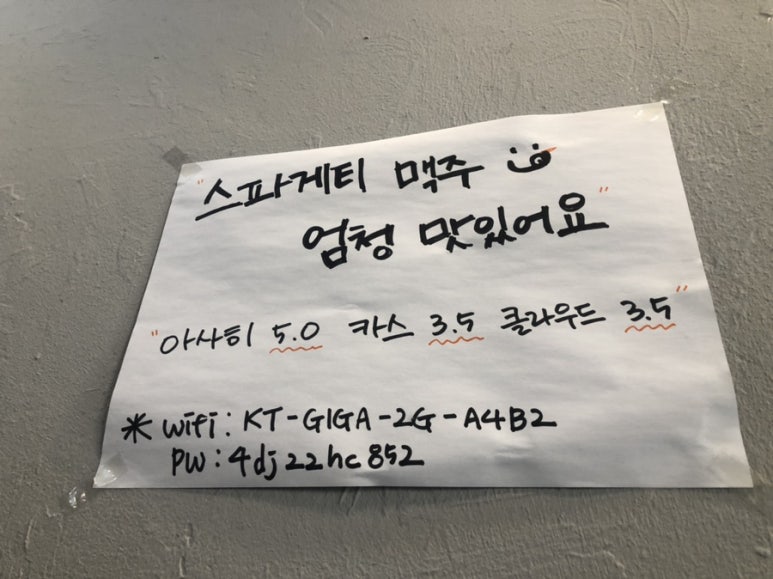 "스파게티 맥주
엄청 맛있어요"
"아사히 5.0 카스 3.5 클라우드 3.5"
* wifi: KT-GIGA-2G-A4B2
PW: 4dj22hc852